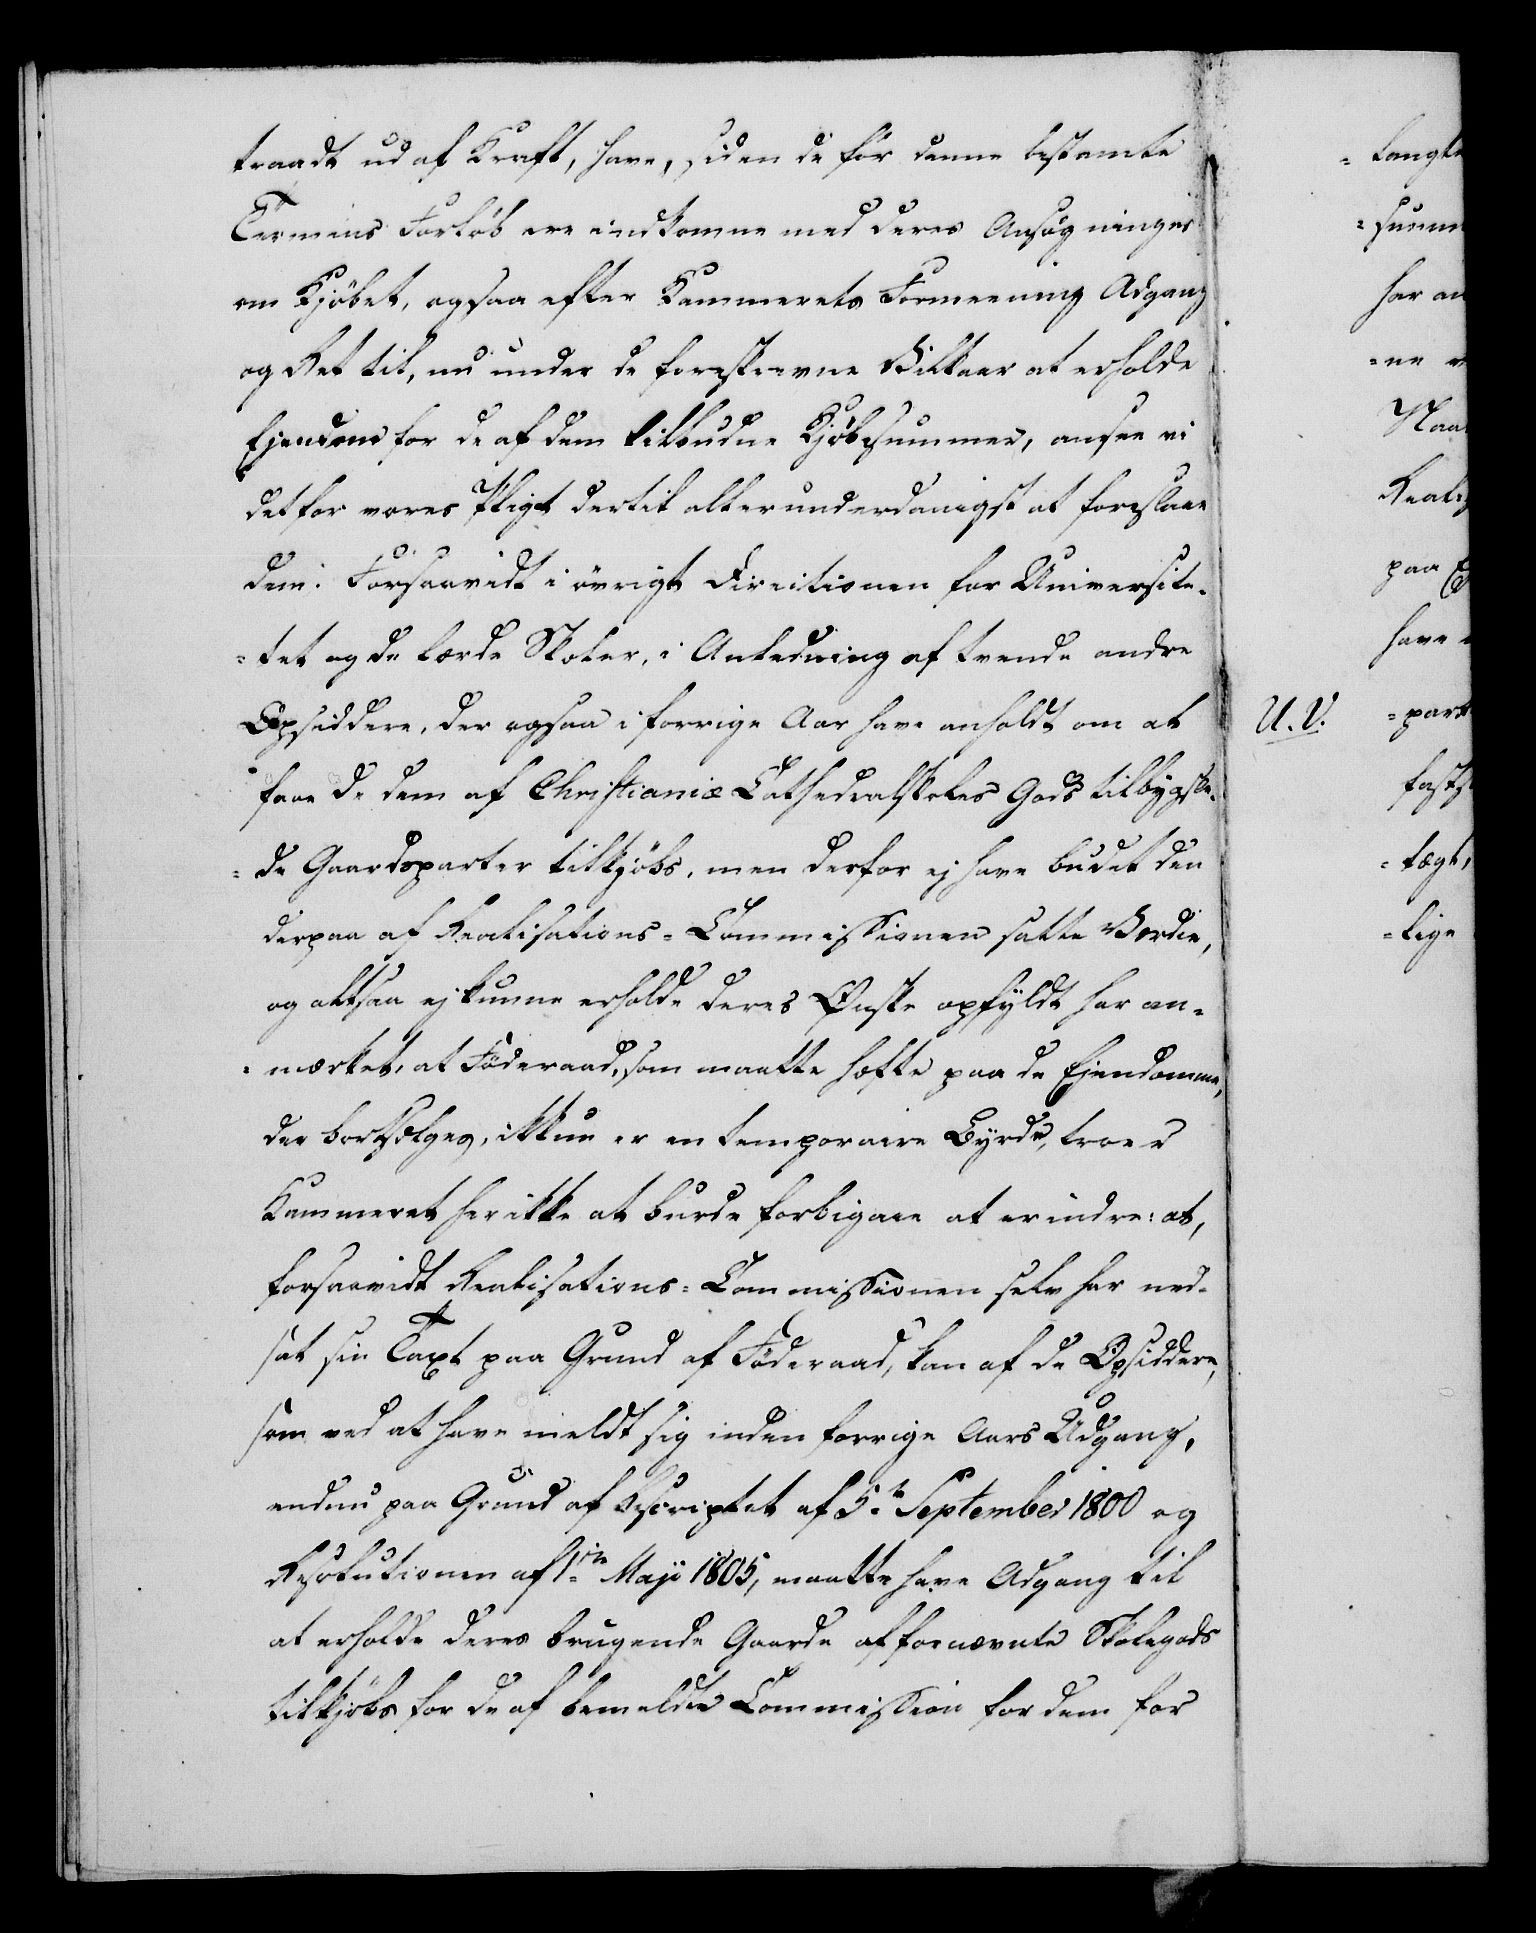 traadt ud af Kraft, have, siden de før denne bestemte
Termins Forløb ere indkomne med deres Ansøgninger
om Kjøbet, ogsaa efter Kammerets Formeening Adgang
og Ret til, nu under de foreskrevne Vilkaar at erholde
Ejendom for de af dem tilbudne Kjøbesummer, ansee vi
det for vores Pligt dertil allerunderdanigst at foreslaae
dem. Forsaavidt i øvrigt Directionen for Universite-
=tet og de lærde Skoler, i Anledning af tvende andre
Opsiddere, der ogsaa i forrige Aar have anholdt om at
faae de dem af Christianiæ Cathedralskoles Gods tilbygsle-
=de Gaardsparter tilkjøbs, men derfor ej have budet den
derpaa af Realisations=Commissionen satte Værdie,
og altsaa ej kunne erholde deres Ønske opfyldt har an-
=mærket, at Föderaad, som maatte hæfte paa de Ejendomme,
der bortsælges, ikkun er en temporaire Byrde, troer
Kammeret her ikke at burde forbigaae at erindre: at,
forsaavidt Realisations=Commissionen selv har ned-
sat sin Taxt paa Grund af Föderaad, kan af de Opsiddere,
som ved at have meldt sig inden forrige Aars Udgang,
endnu paa Grund af Rescriptet af 5te September 1800 og
Resolutionen af 1ste Maji 1805, maatte have Adgang til
at erholde deres brugende Gaarde af fornævnte Skolegods
tilkjøbs for de af bemeldte Commission for dem for
U. V.
=langte
=summ
har an
=ne
Naa
Reali
paa
have
=part
fasts
=lægt,
=lige